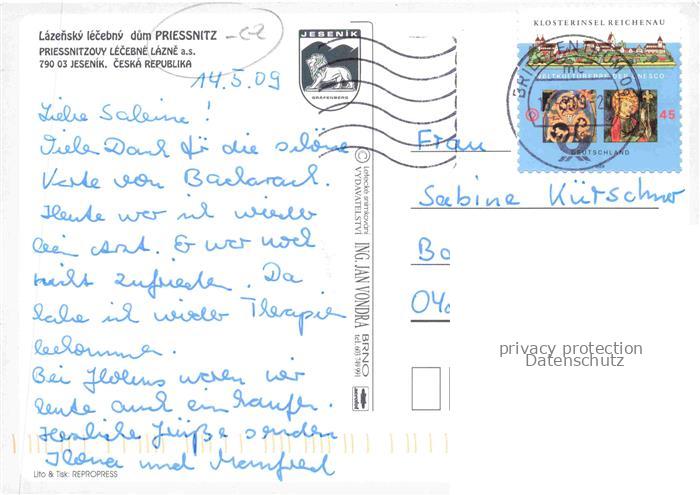 Lázeňský léčebný dům PRIESSNITZ
PRIESSNITZOVY LÉČEBNÉ LÁZNĚ a.s.
790 03 JESENÍK, ČESKÁ REPUBLIKA
14.5.09
Liebe Sabine!
Vielen Dank für die schöne
Karte von Bacharach.
Heute war ich wieder
beim Arzt. Er war noch
nicht zufrieden. Da
habe ich wieder Therapie
bekommen.
Bei waren wir
heute auch einkaufen.
Herzliche Grüße senden
Ilona und Manfred
Lito & Tisk: REPROPRESS
JESENÍK
GRÄFENBERG
Letecké snímkování
VYDAVATELSTVÍ ING. JAN VONDRA BRNO
KLOSTERINSEL REICHENAU
WELTKULTURERBE DER UNESCO
45
DEUTSCHLAND
BRIEFZENTRUM
Frau
Sabine Kürschner
Ba
040
privacy protection
Datenschutz